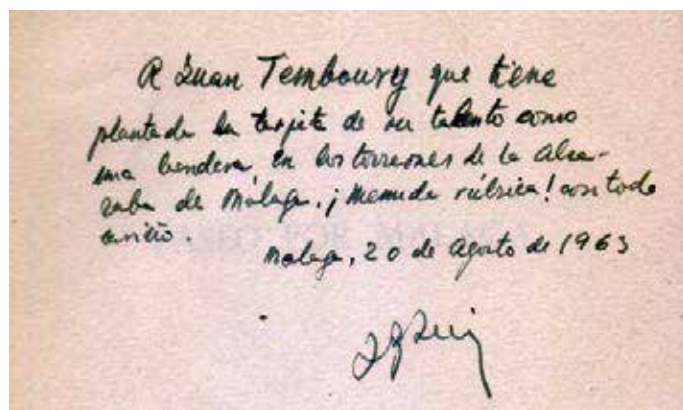 A Juan Temboury que tiene
plantada la tarjeta de su talento como
una bandera en los torreones de la Alca-
zaba de Málaga. ¡Menuda rúbrica! con todo
cariño.
Málaga, 20 de Agosto de 1963